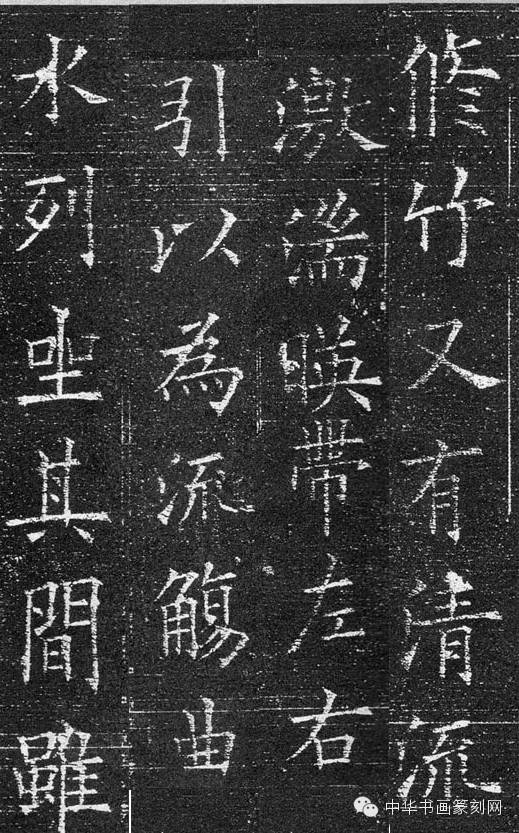 脩竹又有清流
激湍暎帶左右
引以為流觴曲
水列坐其間雖
中华书画篆刻网